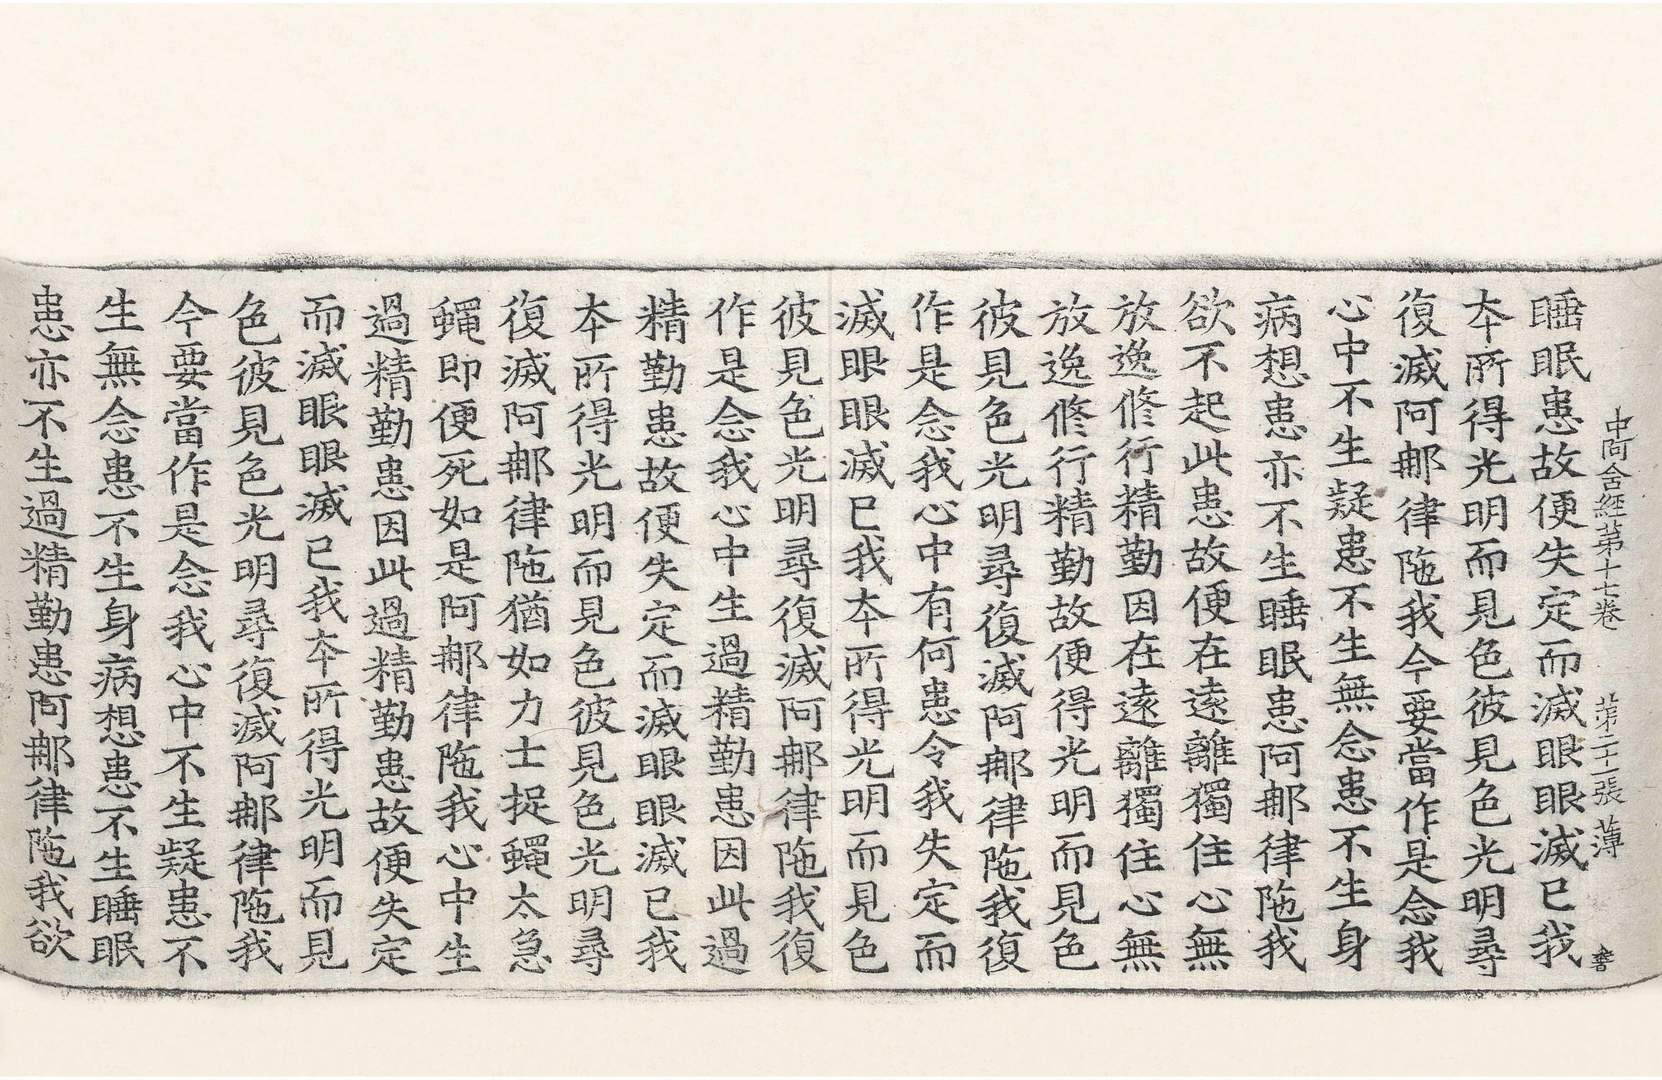 中阿含經第十七卷 第二十一張 薄
睡眠患故便失定而滅眼眼滅已我
本所得光明而見色彼見色光明尋
復滅阿那律陁我今要當作是念我
心中不生疑患不生無念患不生身
病想患亦不生睡眠患阿那律陁我
欲不起此患故便在遠離獨住心無
放逸修行精勤因在遠離獨住心無
放逸修行精勤故便得光明而見色
彼見色光明尋復滅阿那律陁我復
作是念我心中有何患令我失定而
滅眼眼滅已我本所得光明而見色
彼見色光明尋復滅阿那律陁我復
作是念我心中生過精勤患因此過
精勤患故便失定而滅眼眼滅已我
本所得光明而見色彼見色光明尋
復滅阿那律陁猶如力士捉蠅太急
蠅即便死如是阿那律陁我心中生
過精勤患因此過精勤患故便失定
而滅眼眼滅已我本所得光明而見
色彼見色光明尋復滅阿那律陁我
今要當作是念我心中不生疑患不
生無念患不生身病想患不生睡眠
患亦不生過精勤患阿那律陁我欲